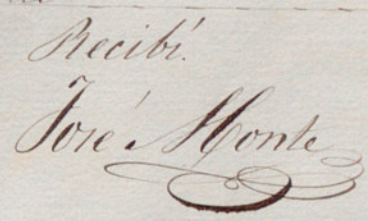 Recibí.
José Monte